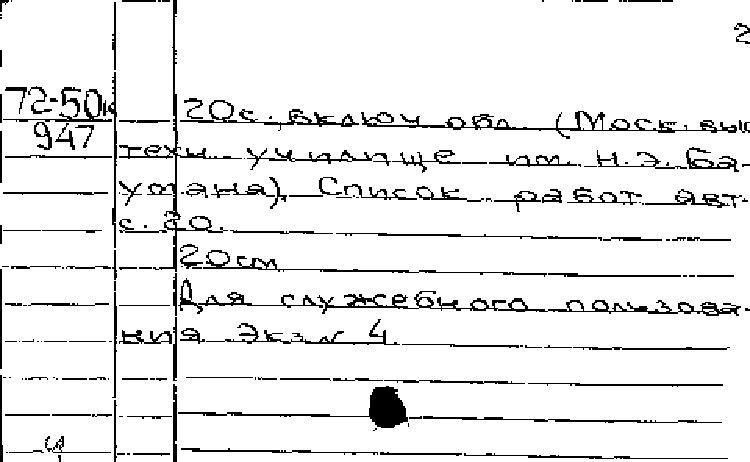 2
72-50к
947
20с., включ. обл. (Моск. выс
техн. училище им. Н.Э. Ба-
умана). Список работ авт.
с. 20.
20см
Для служебного пользова-
ния. Экз.№ 4.